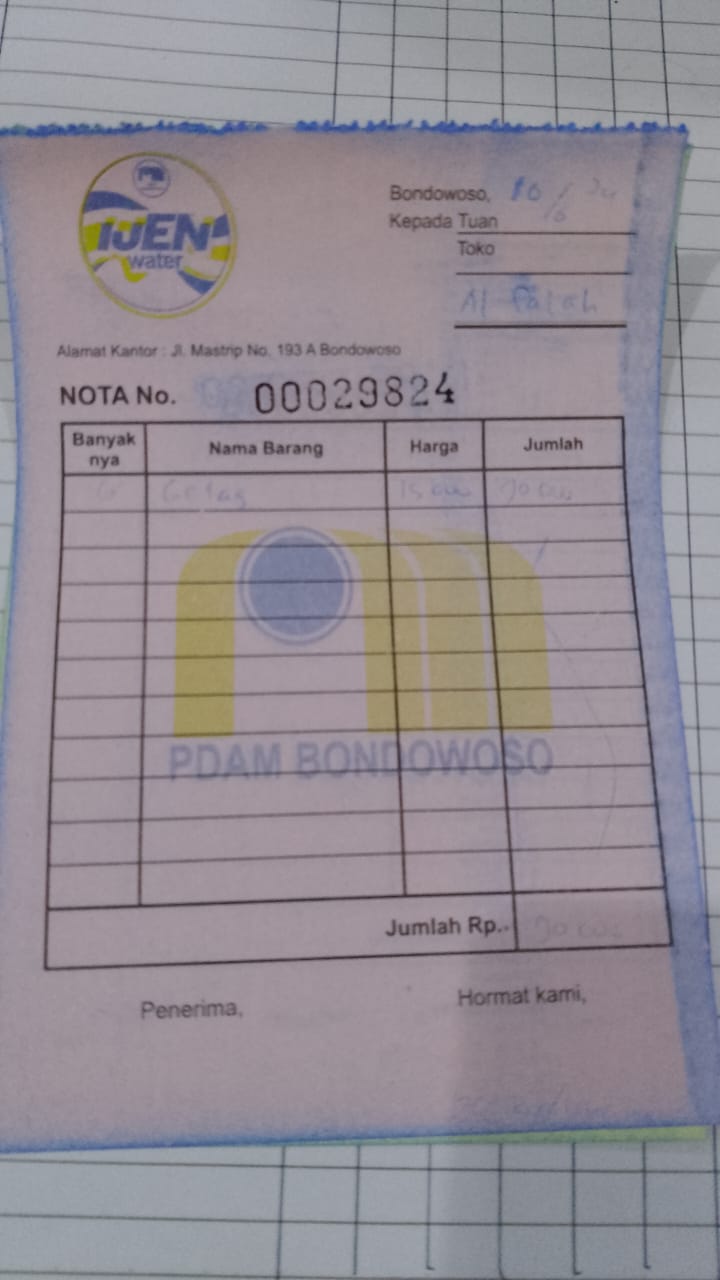 IJEN
water
Bondowoso, 10/6 24
Kepada Tuan
Toko
Al Falah
Alamat Kantor : Jl. Mastrip No. 193 A Bondowoso
NOTA No. 00029824
Banyak nya Nama Barang Harga Jumlah
6 Gelas 15 000 90 000
PDAM BONDOWOSO
Jumlah Rp. 90 000
Penerima, Hormat kami,